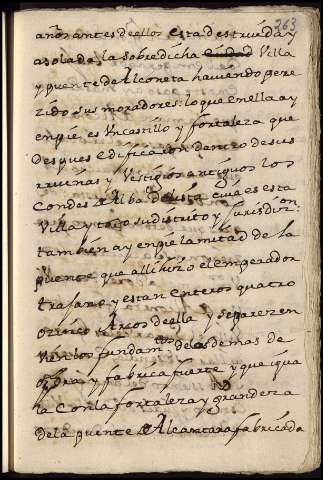 263
años antes de ellos esta destruida y
asolada la sobredicha ciudad Villa
y puente da Alconeta haviendo pere
zido sus moradores: lo que en ella ay
en pie es Un castillo y fortaleza que
despues edificaron dentro de sus
rruinas y Vestigios antiguos los
Condes de Alba de lista cuia es esta
Villa y toco su distrito y Jurisdiçion
tambien ay en pie la mitad de la
puente que alli hizo el emperador
trajano y estan enteros quatro
o cinco Arcos de ella y se parezen
Vien los fundam.tos de los demas de
obra y fabrica fuerte y que igua
la Con la fortaleza y grandeza
de la puente de Alcantara fabricada